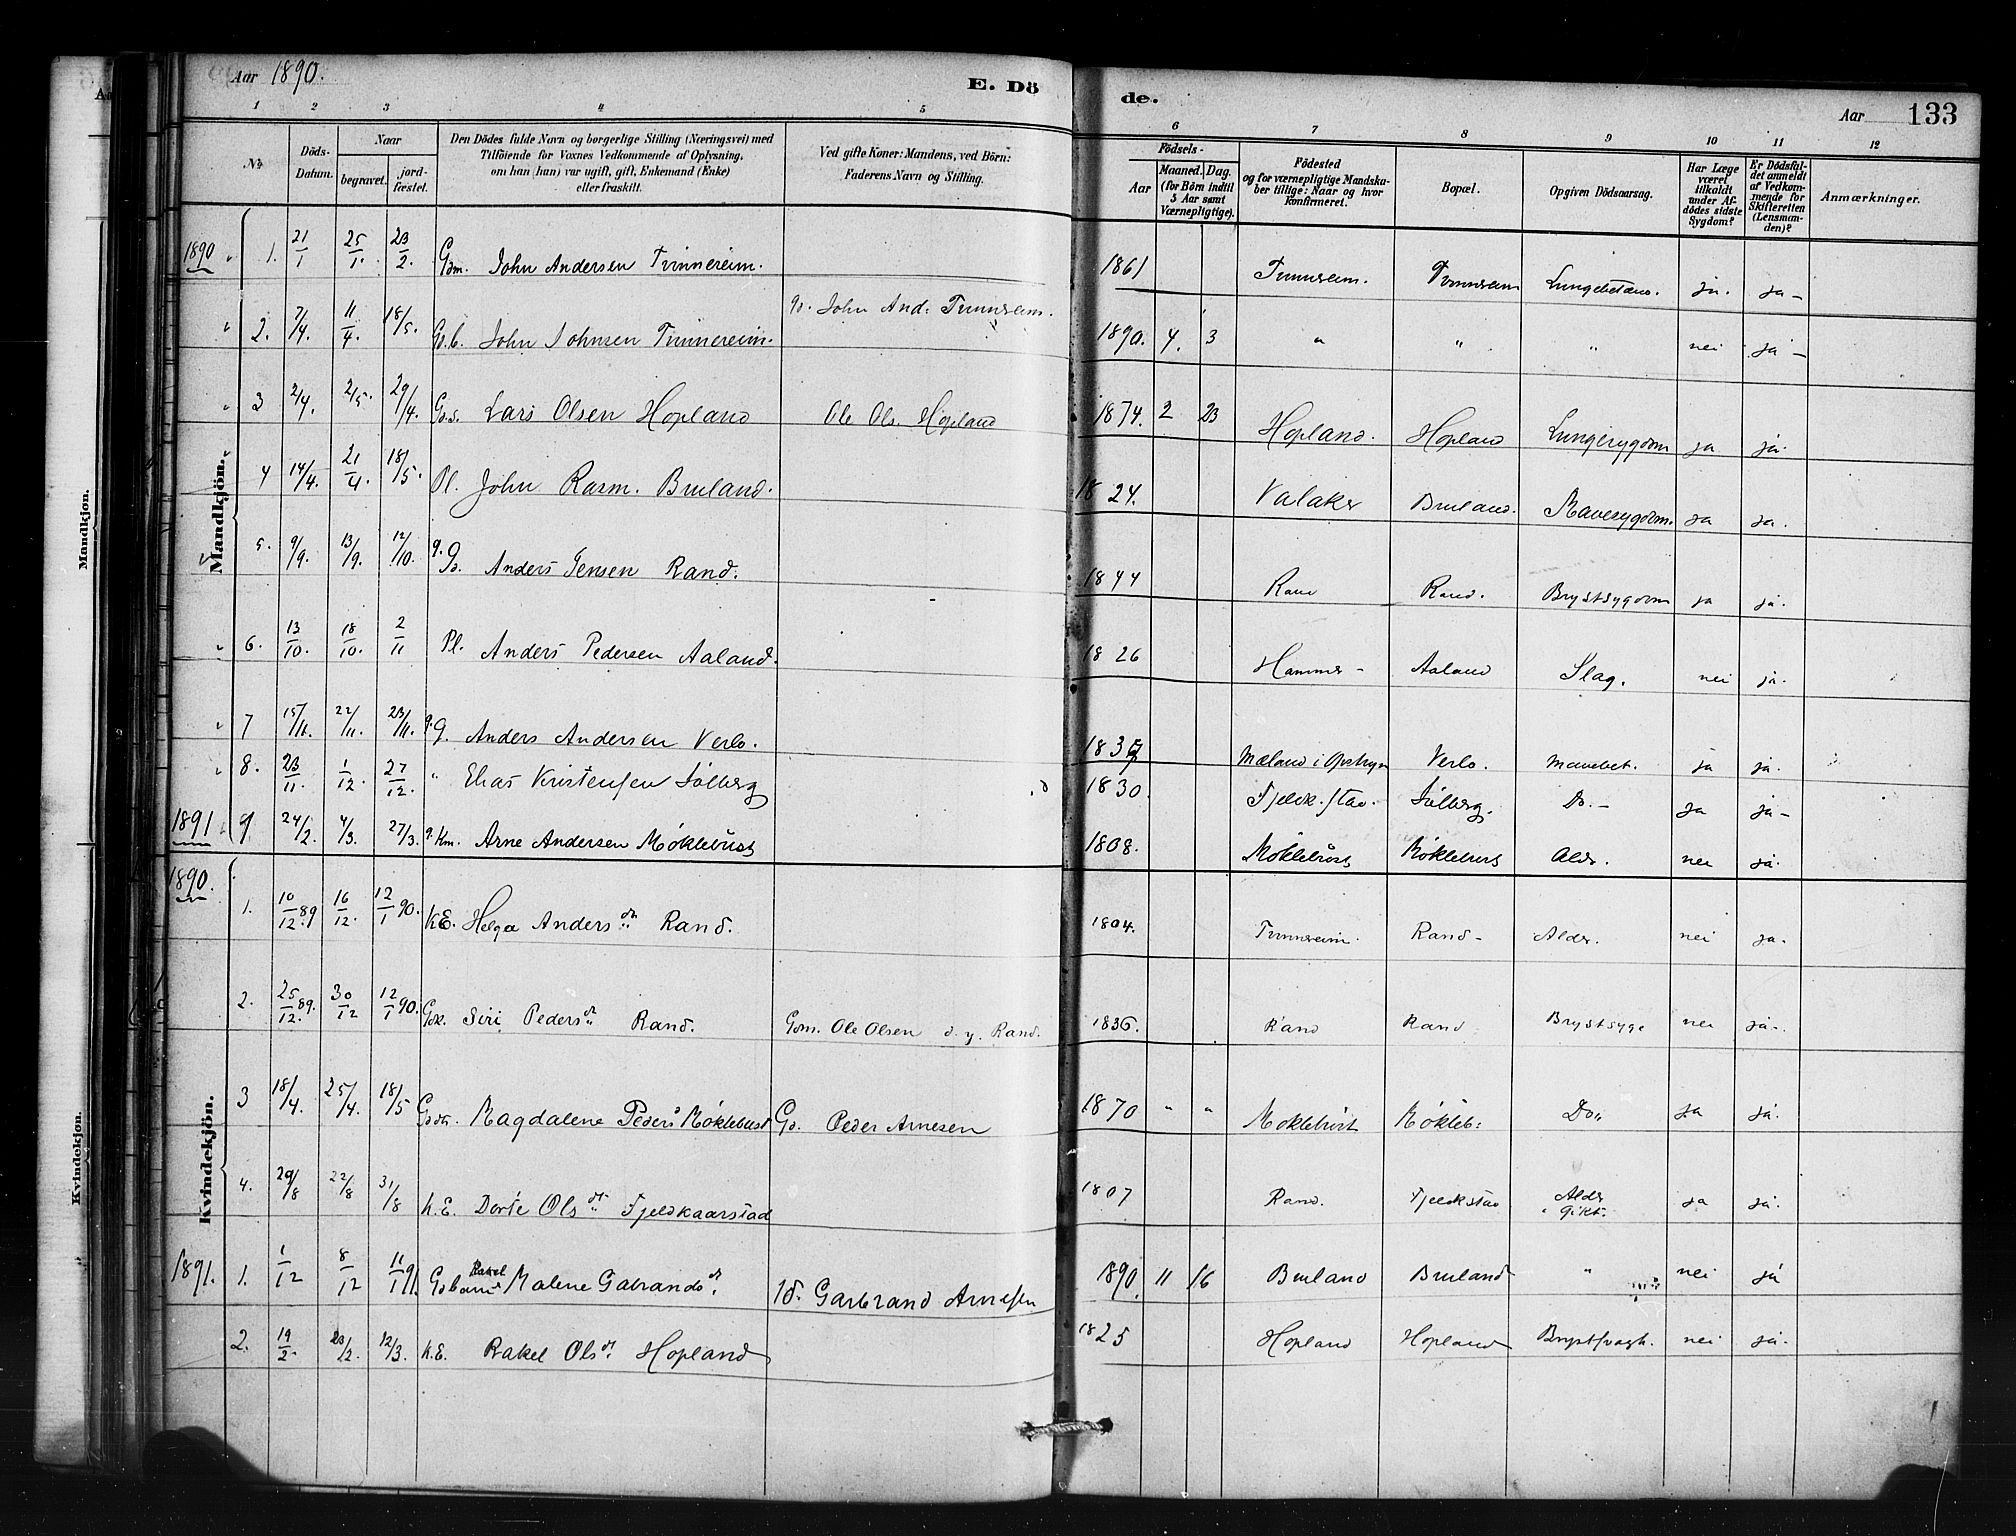 Aar 1890. E. Dö de. Aar 133
1 2 3 4 5 6 7 8 9 10 11 12
No. Döds-Datum. Naar begravet. jord-fæstet. Den Dödes fulde Navn og borgerlige Stilling (Næringsvei) med Tilföiende for Voxnes Vedkommende af Oplysning, om han (hun) var ugift, gift, Enkemand (Enke) eller fraskilt. Ved gifte Koner: Mandens, ved Börn: Faderens Navn og Stilling. Födsels- Aar Maaned. Dag. (for Börn indtil 5 Aar samt Værnepligtige). Födested og for værnepligtige Mandskaber tillige: Naar og hvor konfirmeret. Bopæl. Opgiven Dödsaarsag. Har Læge været tilkaldt under Afdödes sidste Sygdom? Er Dödsfaldet anmeldt af Vedkommende for Skifteretten (Lensmanden)? Anmærkninger.
Mandkjön.
1890 " 1. 21/1 25/1. 23/2. Gbm. John Andersen Tvinnereim. 1861 Tvinnreim. Tvinnreim Lungebetænd. ja. ja-
" 2. 7/4. 11/4. 18/5. Gb.b. John Johnsen Tvinnereim. gb. John And: Tvinnreim. 1890. 4. 3 " " " nei ja-
" 3 2/4. 2/5. 29/4. Gbs. Lars Olsen Hopland Ole Ols. Hopland 1874. 2 23 Hopland. Hopland Lungesygdom ja ja.
4 14/4. 21/4. 18/5. Pl. John Rasm. Bruland. 1824. Valaker Bruland. Mavesygdom. ja ja.
5. 9/9. 13/9. 12/10. g. Gb. Anders Jensen Rand. 1844 Rand Rand. Brystsygdom ja ja.
" 6. 13/10. 18/10. 2/11 Pl. Anders Pedersen Aaland. 1826 Hammer- Aaland Slag. nei ja.
" 7 15/11. 22/11. 23/11. g. G. Anders Andersen Verlo. Mæland i Opstryn Verlo. Mavebet. ja ja.
" 8. 23/11. 1/12. 27/12. " Elias Kristensen Solberg 1830. Fjelk.stad. Solberg. Do.- ja ja-
1891 9. 24/2. 4/3. 27/3. g. Km. Arne Andersen Møklebust 1808. Møklebust Møklebust Alder. nei ja.
Kvindekjön.
1890. 1. 10/12.89 16/12. 12/1 90. K.E. Helga Andersdtr Rand. 1804. Tvinnreim. Rand- Alder. nei ja.
2. 25/12.89. 30/12 12/1 90. Gbk. Siri Pedersdtr Rand. Gbm. Ole Olsen d. y. Rand. 1836. Rand Rand Brystsyge nei ja.
3 18/4. 25/4. 18/5 Gbdtr. Magdalene Peders Møklebust Gb. Peder Arnesen 1870 " " Moklebust Møkleb: Do" ja ja.
4. 29/8 22/8 31/8 K.E. Dorte Olsdtr Fjeldkaarstad 1807 Rand. Fjeldkstad Alder Gikt. ja ja.
1891. 1. 1/12 8/12 11/1 91. Gbbarn Rakel Malene Gabrandsdtr. Gb. Garbrand Arnesen 1890. 11 16 Bruland Bruland " nei ja
2. 19/2. 23/2. 12/3. K.E. Rakel Olsdtr. Hopland 1825 Hopland Hopland Brystsvagh. nei ja.
Mandkjön.
Kvindekjön.